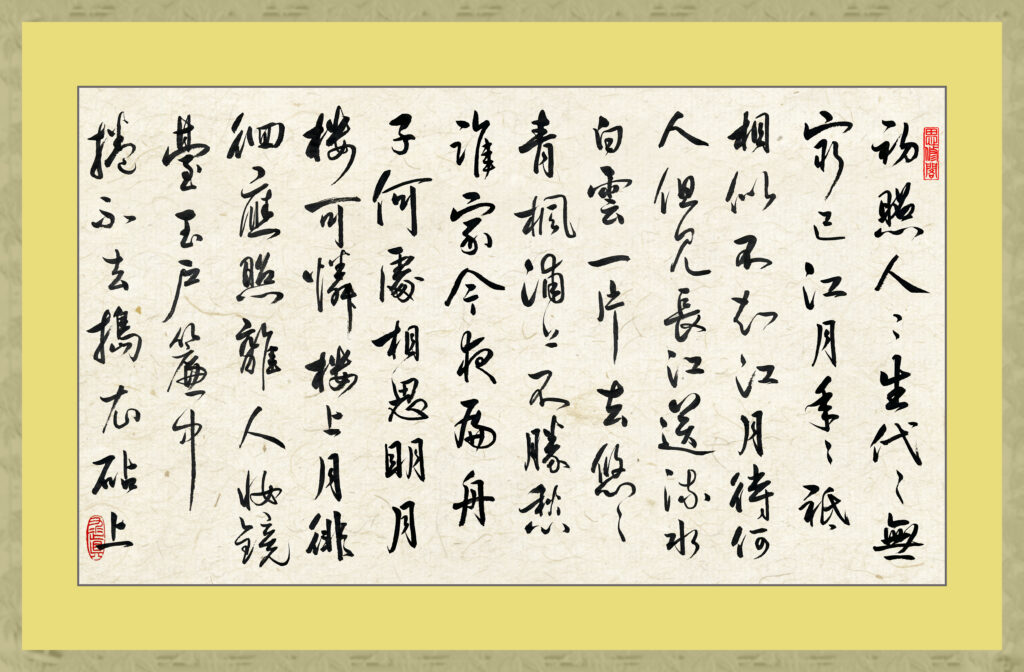 初照人〻生代〻無
窮已江月年〻祗
相似不知江月待何
人但見長江送流水
白雲一片去悠〻
青楓浦上不勝愁
誰家今夜扁舟
子何處相思明月
楼可憐楼上月徘
徊應照離人妝鏡
臺玉戶簾中
捲不去擣衣砧上